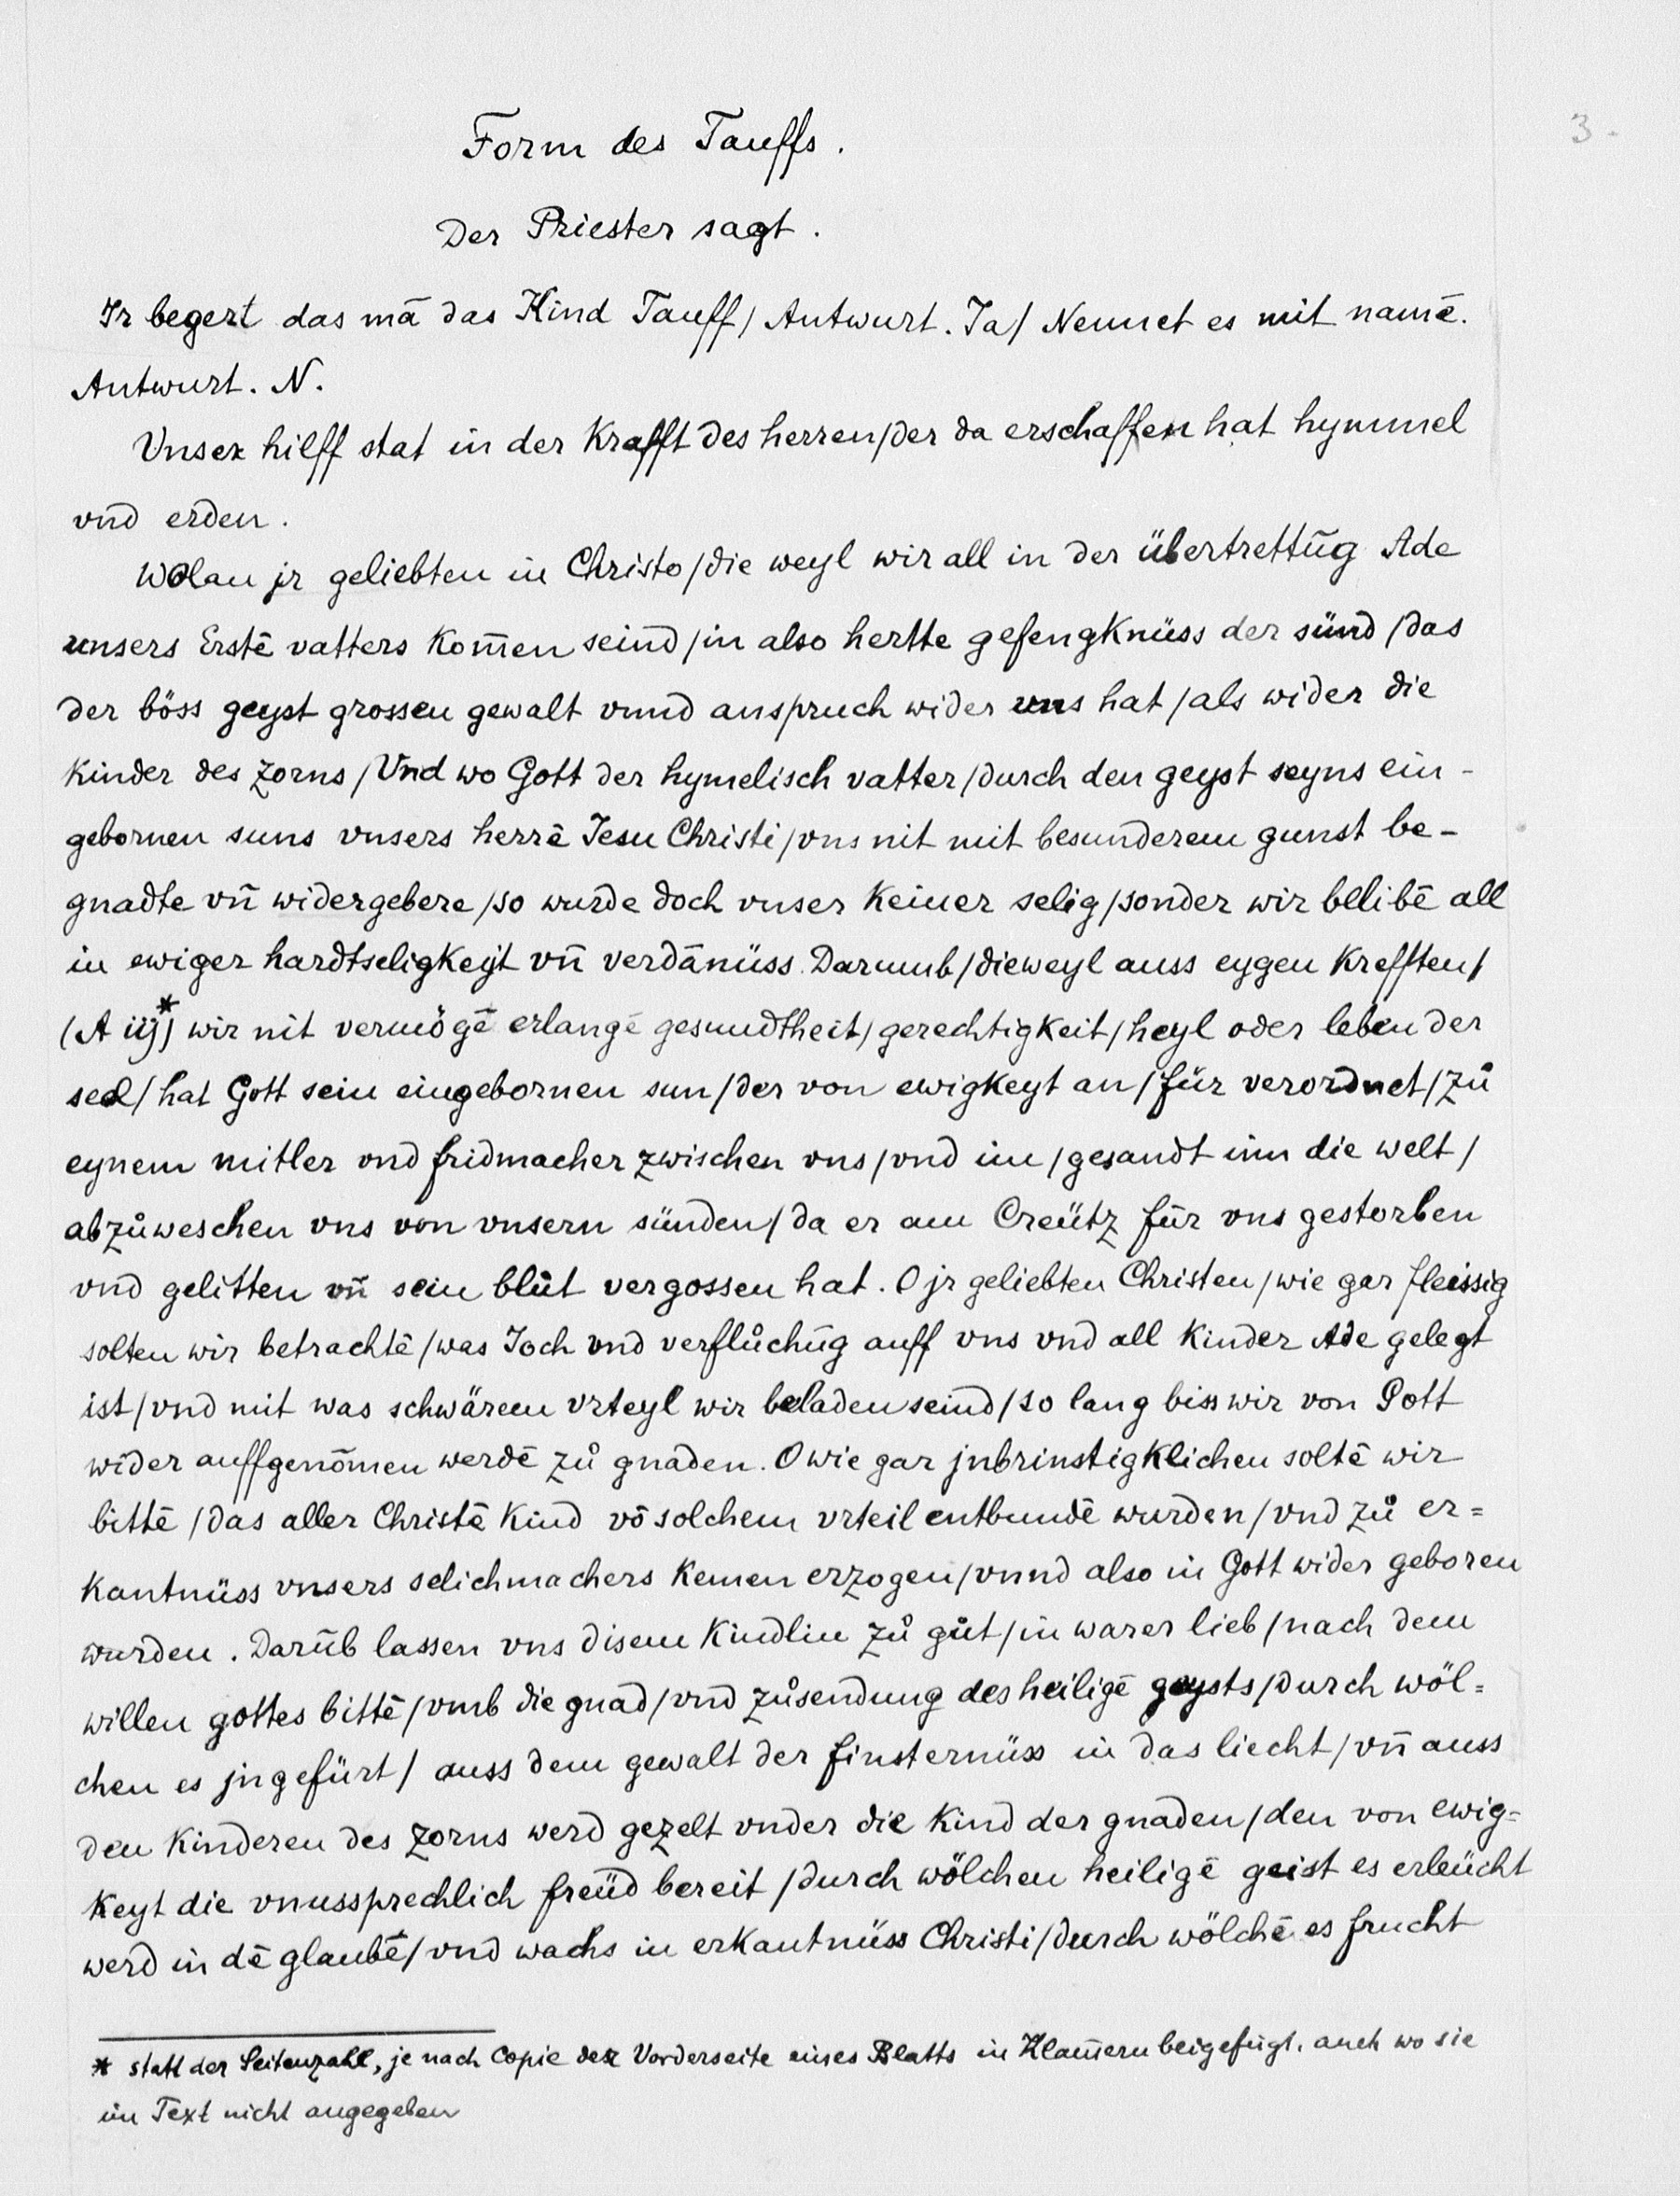 3.
Form des Tauffs.
Der Priester sagt.
Ir begert das mā das Kind Tauff / Antwurt. Ja / Nennet es mit namē.
Antwurt. N.
Vnser hilff stat in der Krafft des herren / der da erschaffen hat hymmel
vnd erden.
WOlan jr geliebten in Christo / die weyl wir all in der übertrettūg Ade
unsers Erstē vatters Kom̄en seind / in also hertte gefengKnüss der sünd / das
der böss geyst grossen gewalt vnnd anspruch wider uns hat / als wider die
Kinder des zorns / Vnd wo Gott der hymelisch vatter / durch den geyst seyns ein-
gebornen suns vnsers herrē Jesu Christi / vns nit mit besunderem gunst be-
gnadte vn̄ widergebere / so wurde doch vnser Keiner selig / sonder wir bllibē all
in ewiger hardtseligKeyt vn̄ verdānüss. Darumb / dieweyl auss eygen Krefften /
(A iij)* wir nit vermögē erlangē gesundtheit / gerechtigkeit / heyl oder leben der
seel / hat Gott sein eingebornen sun / der von ewigKeyt an / für verordnet / zů
eynem mitler vnd fridmacher zwischen vns / vnd im / gesandt inn die welt /
abzůweschen vns von vnsern sünden / da er am Creütz für vns gestorben
vnd gelitten vn̄ sein blůt vergossen hat. O jr geliebten Christen / wie gar fleissig
solten wir betrachtē / was Joch vnd verflůchūg auff vns vnd all Kinder Ade gelegt
ist / vnd mit was schwärem vrteyl wir beladen seind / so lang biss wir von Gott
wider auffgenōmen werdē zů gnaden. O wie gar jnbrinstigKlichen soltē wir
bittē / das aller Christē Kind vō solchem vrteil entbundē wurden / vnd zů er=
Kantnüss vnsers selichmachers Kemen erzogen / vnnd also in Gott wider geboren
wurden. Darūb lassen vns disem Kindlin zů gůt / in warer lieb / nach dem
willen gottes bittē / vmb die gnad / vnd zůsendung des heiligē geysts / durch wöl=
chen es jngefürt / auss dem gewalt der finsternüss in das liecht / vn̄ auss
den Kinderen des zorns werd gezelt vnder die Kind der gnaden / den von ewig=
Keyt die vnussprechlich freüd bereit / durch wölchen heiligē geist es erleücht
werd in dē glaubē / vnd wachs in erKantnüss Christi / durch wölchē es frucht
* statt der Seitenzahl, je nach Copie der Vorderseite eines Blatts in Klam̄ern beigefügt, auch wo sie
im Text nicht angegeben